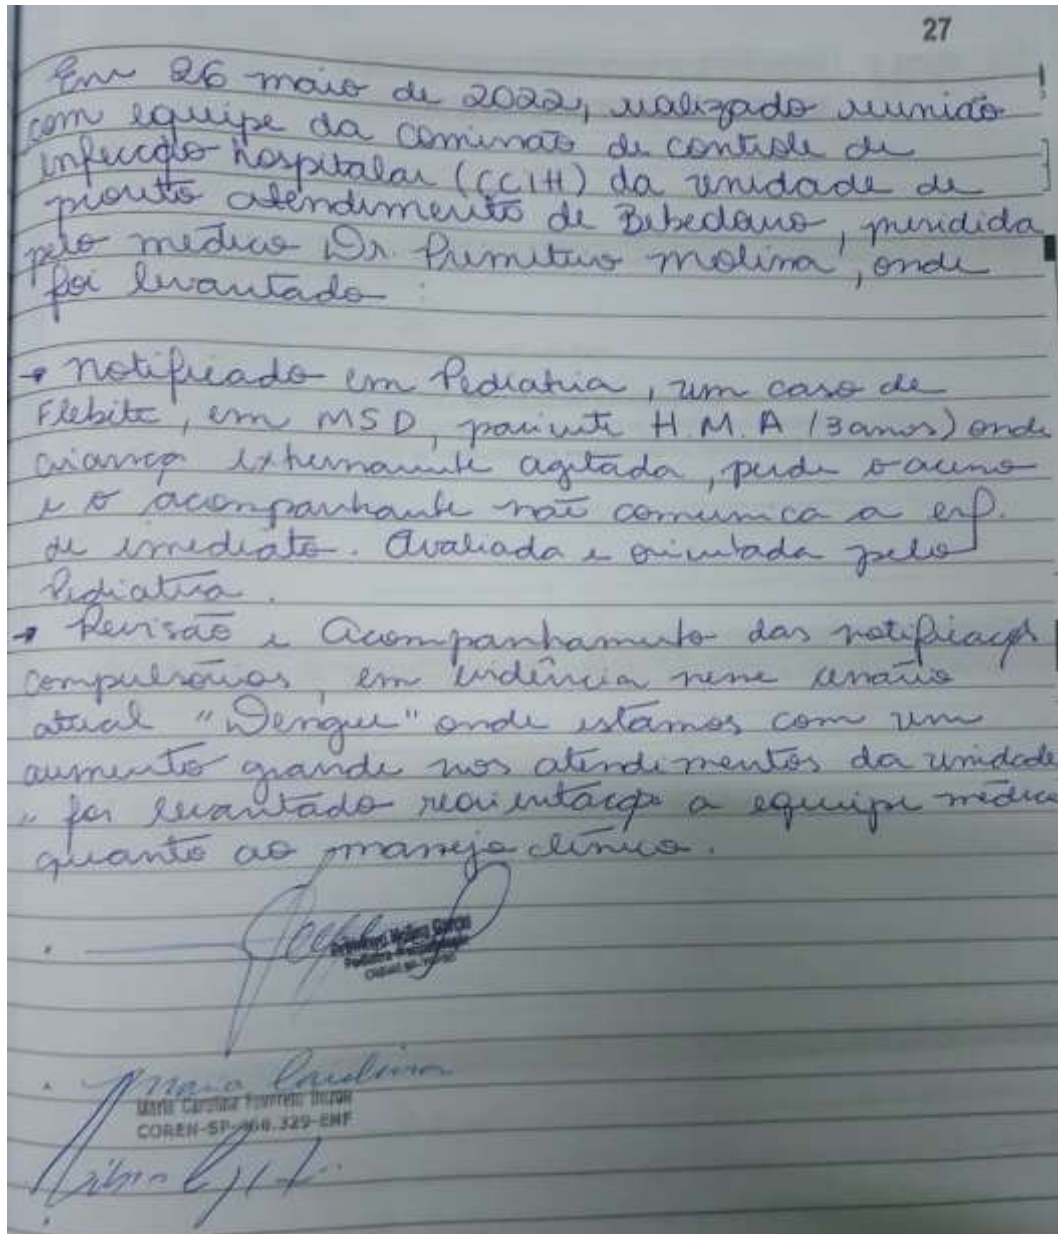 27
Em 26 maio de 2022, realizado reunião
com equipe da comissão de controle de
infecção hospitalar (CCIH) da unidade de
pronto atendimento de Bebedouro, presidida
pelo médico Dr. Primitivo Molina, onde
foi levantado:
→ Notificado em Pediatria, um caso de
Flebite, em MSD, paciente H.M.A (3 anos) onde
criança extremamente agitada, perde o acesso
e o acompanhante não comunica a enf.
de imediato. Avaliada e orientada pelo
Pediatra.
→ Revisão e Acompanhamento das notificações
compulsórias, em evidência nesse cenário
atual "Dengue" onde estamos com um
aumento grande nos atendimentos da unidade
" foi levantado reorientação a equipe médica
quanto ao manejo clínico.
Molina Garcia
Pediatra
Maria Carolina
Maria Carolina
COREN-SP 329-ENF